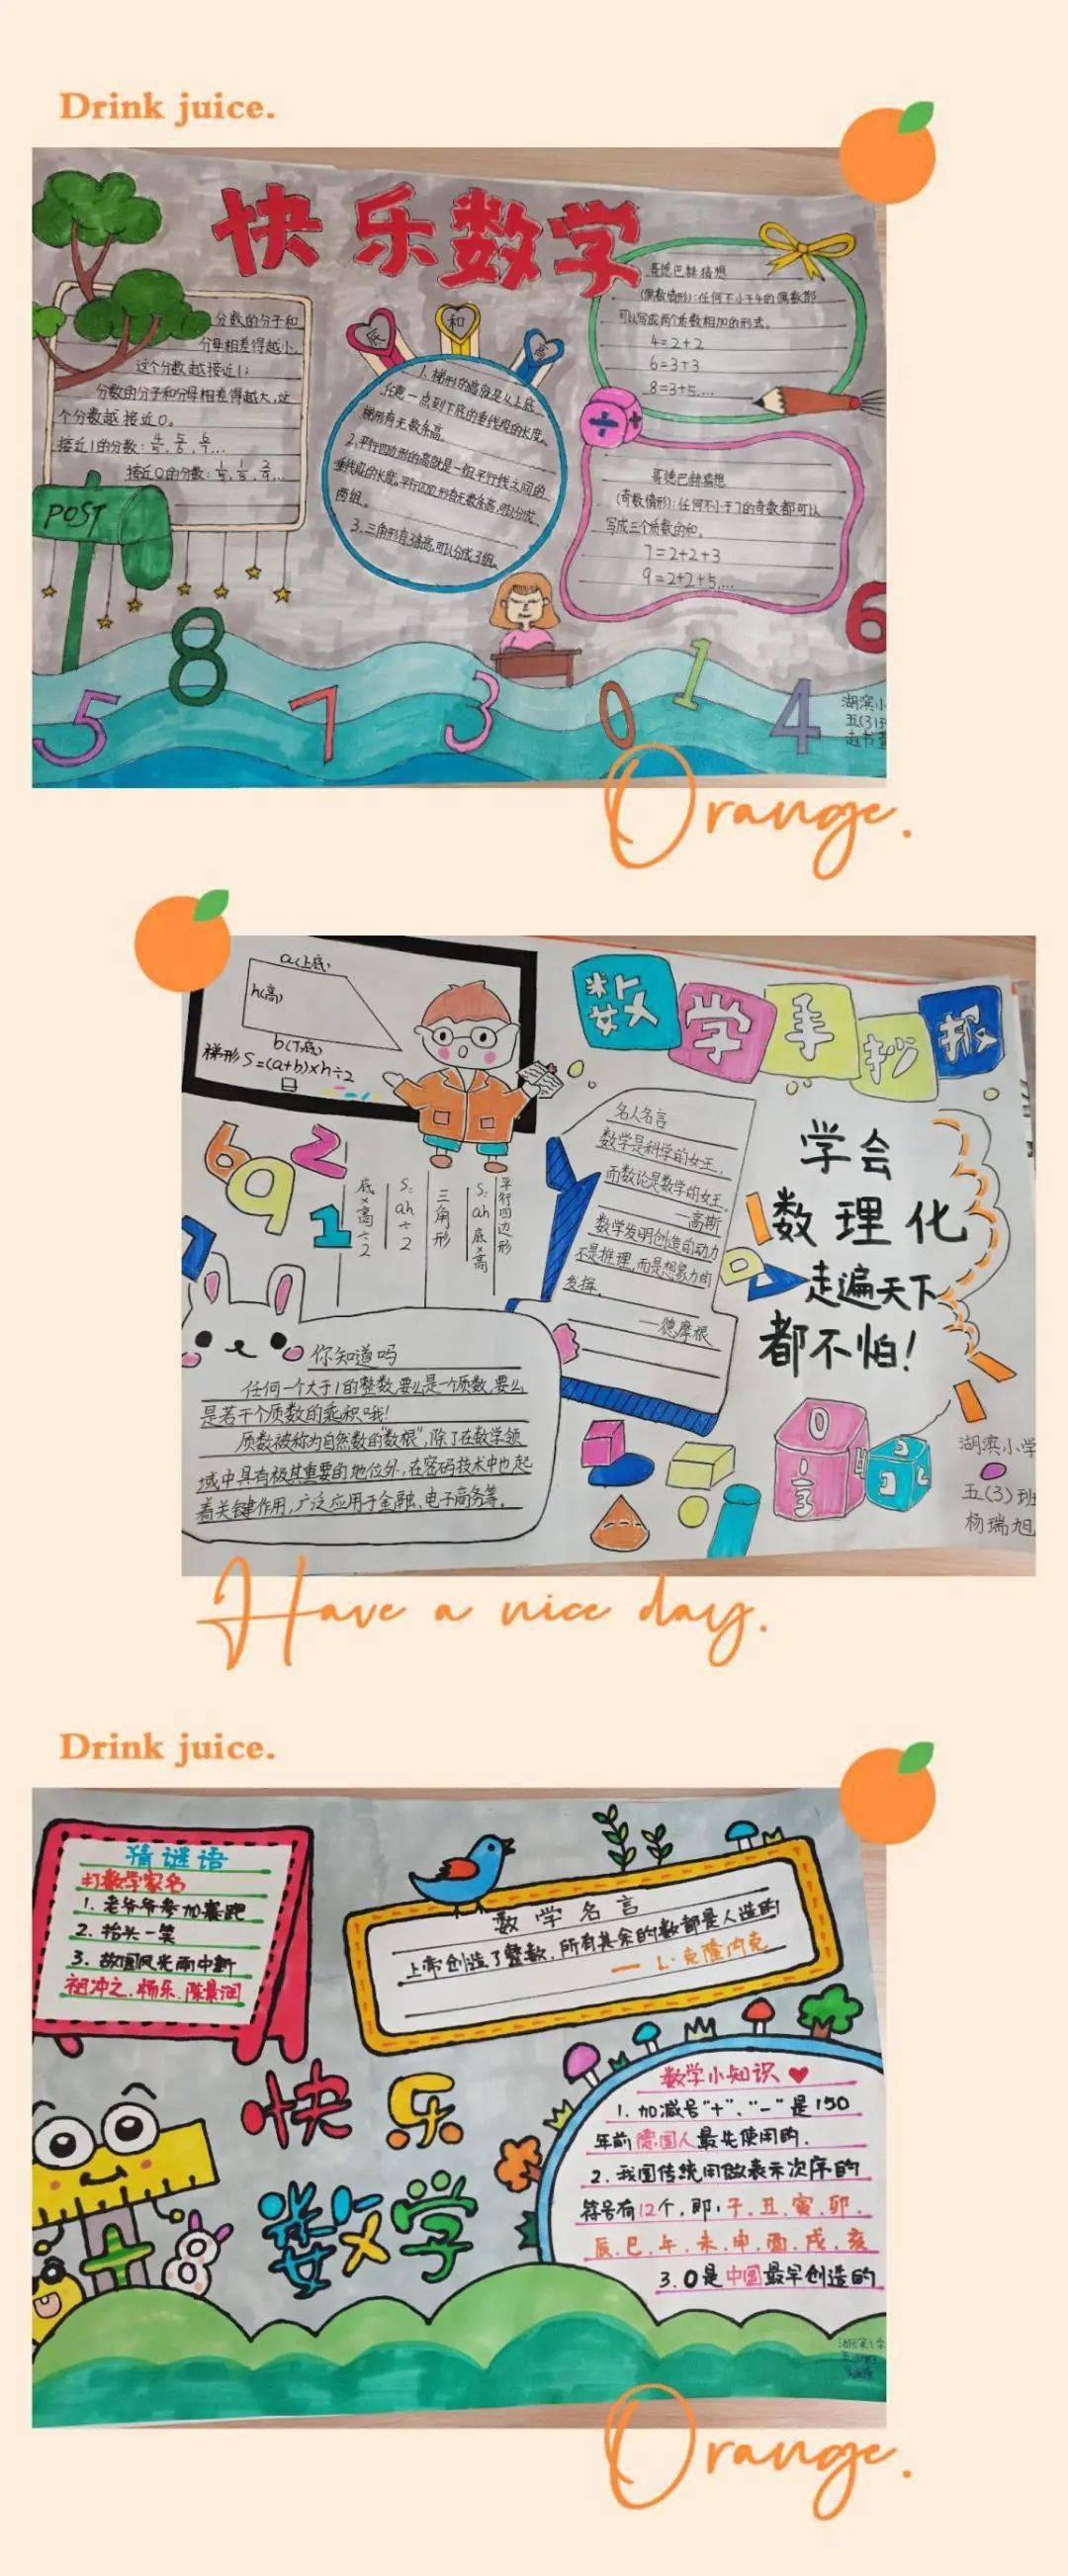 Drink juice.
快乐数学
分数的分子和
分母相差得越小,
这个分数越接近1;
分数的分子和分母相差得越大,这
个分数越接近0。
接近1的分数: 4/5, 5/6, 6/7...
接近0的分数:
POST
底 和 高
1. 梯形的高就是从上底
任意一点到下底的垂线段的长度。
梯形有无数条高。
2.平行四边形的高就是一组平行线之间的
垂线段的长度。平行四边形有无数条高,可以分成
两组。
3.三角形有3条高,可以分成3组。
哥德巴赫猜想
(偶数情形):任何不小于4的偶数都
可以写成两个质数相加的形式。
4=2+2
6=3+3
8=3+5,...
哥德巴赫猜想
(奇数情形):任何不小于7的奇数都可以
写成三个质数的和。
7=2+2+3
9=2+2+5,...
5 8 7 3 0 1 4 6
湖滨小
五(3)班
Orange.
a(上底)
h(高)
b(下底)
梯形S=(a+b)×h÷2
数学手抄报
6 9 2 1 7
平行四边形
S=ah 底×高
三角形
S=ah÷2
底×高÷2
名人名言
数学是科学的女王,
而数论是数学的女王。
—高斯
数学发明创造的动力
不是推理,而是想象力的
发挥。
—德摩根
学会
数理化
走遍天下
都不怕!
你知道吗
任何一个大于1的整数,要么是一个质数,要么
是若干个质数的乘积哦!
质数被称为自然数的“数根”,除了在数学领
域中具有极其重要的地位外,在密码技术中也起
着关键作用,广泛应用于金融、电子商务等。
湖滨小学
五(3)班
杨瑞旭
Have a nice day.
Drink juice.
猜谜语
打数学家名
1. 老爷爷参加赛跑
2. 抬头一笑
3. 故国风光雨中新
祖冲之.杨乐.陈景润
数学名言
上帝创造了整数,所有其余的数都是人造的
— L·克隆内克
快乐
数学
数学小知识
1. 加减号“+”、“-”是150
年前德国人最先使用的.
2. 我国传统用做表示次序的
符号有12个,即:子.丑.寅.卯.
辰.巳.午.未.申.酉.戌.亥
3. 0是中国最早创造的
Orange.